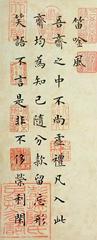 笛唫風
吾齋之中不尚虛禮凡入此
齋均為知己隨分款留忘形
笑語不言是非不侈榮利閒